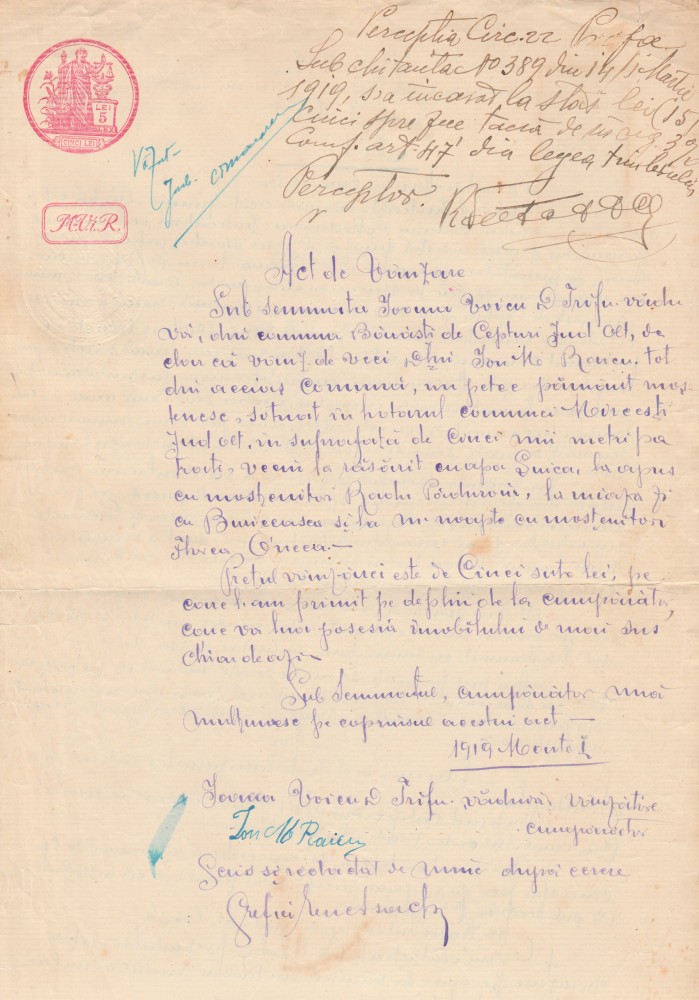 Percepția Circ. 22
Sub chitanța No 389 din 14/1 Martie
1919, s'a încasat la stat lei (15)
Cinci spre zece taxa de înreg. 3%
Conf. art. 47 din legea timbrului
Perceptor.
LEI
5
CINCI LEI
Văzut
M.V.R.
Act de Vânzare
Sub semnata Ioana Voicu D Trifu. vădu
vă, din comuna Bănești de Cepturi Jud Olt, de
clar că vânz. de veci Dlui Ion M. Raicu. tot
din aceiaș comună, un petec pământ moș
tenesc, situat în hotarul comunei Mircești
Jud Olt, in suprafață de Cinci mii metri pa
trați, vecini la răsărit cu apa Șuica, la apus
cu moștenitori Radu Păduraru, la miază zi
cu și la m. noapte cu moștenitori
Florea Oncea.—
Prețul vânzării este de Cinci sute lei, pe
care l'am primit pe deplin de la cumpărător,
care va lua posesia imobilului de mai sus
chiar de azi—
Sub Semnatul, cumpărător mă
mulțumesc pe coprinsul acestui act —
1919 Martie 1
Ioana Voicu D Trifu. văduvă vânzătoare
Ion M Raicu cumpărător
Scris și redactat de mine după cerere
Grefier